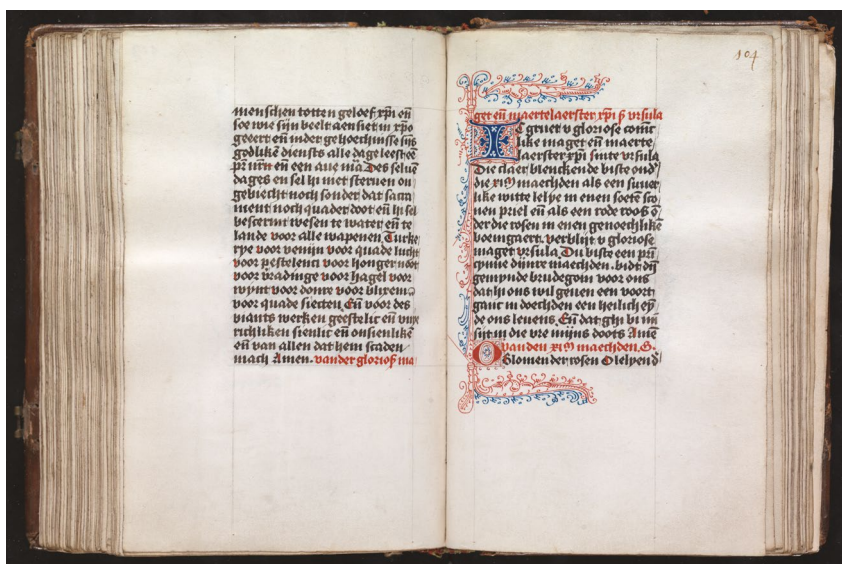 menschen totten geloef xpi en̄
soe wie sijn beelt aensiet in xpo
geeert en̄ inder gehoechnisse sijs
godlikē diensts alle dage leest oec
pr̄ nr̄n en̄ een aue mā Des seluē
dages en sel hi niet steruen on
gebiecht noch sonder dat sacra
ment noch quader doot en̄ hi sel
beschermt wesen te water en̄ te
lande voor alle wapenen Turke
rye voor venijn voor quade lucht
voor pestelenci voor honger noot
voor bradinge voor hagel voor
wynt voor donre voor blixem
voor quade siecten En̄ voor des
viants werken geestelic en̄
richliken sienlic en̄ onsienlikē
en̄ van allen dat hem scaden
mach Amen. vander glorios ma
104
get en̄ maertelaerster xpi s vrsula
Ic gruet v gloriose coninc
like maget en̄ maerte
laerster xpi sinte vrsula
Die claer blenckende biste ond
die xiᴹ maechden als een suuer
like witte lelye in enen soetē sco
nen priel en̄ als een rode roos ō
der die rosen in enen genoechlikē
boemgaert. verblijt v gloriose
maget vrsula Du biste een prī
cynne dijnre maechden. bidt dī
gemynde brudegom voor ons
dat hi ons wil geuen een voort
ganc in doechden een heilich eȳ
de ons leuens. En̄ dat ghi bi mi
sijt in die vre mijns doots Amē
van den xiᴹ maechden. G.
O Blomen der rosen O lelyen d